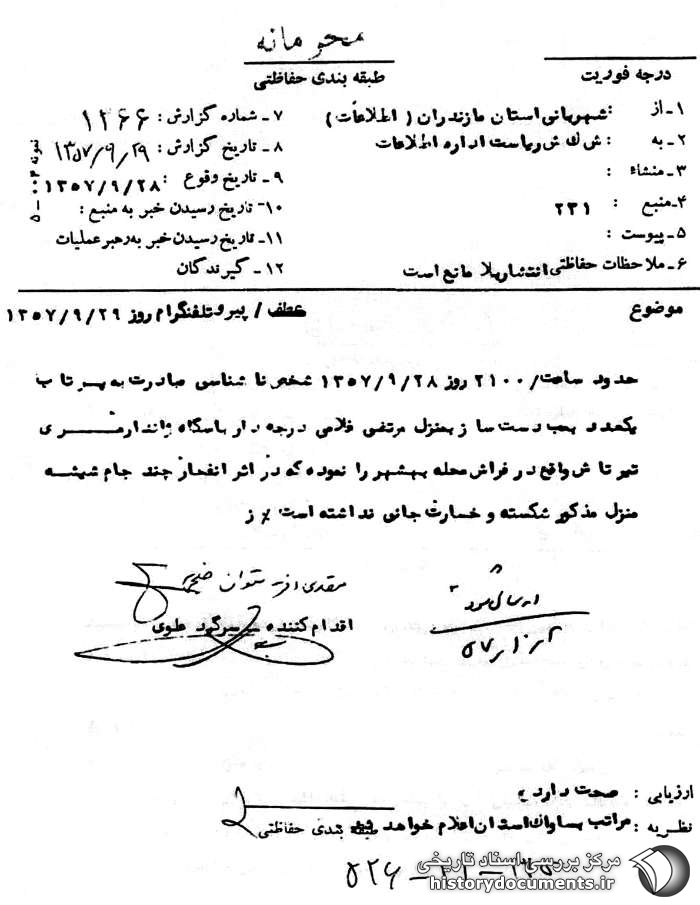 محرمانه
درجه فوریت
طبقه بندی حفاظتی
۱ـ از : شهربانی استان مازندران ( اطلاعات )
۲ـ به : ش ک ش ریاست اداره اطلاعات
۳ـ منشاء :
۴ـ منبع : ۲۳۱
۵ـ پیوست :
۶ـ ملاحظات حفاظتی انتشار بلا مانع است
۷ـ شماره گزارش : ۱۲۶۶
۸ـ تاریخ گزارش : ۱۳۵۷/۹/۲۹
۹ـ تاریخ وقوع : ۱۳۵۷/۹/۲۸
۱۰- تاریخ رسیدن خبر به منبع :
۱۱ـ تاریخ رسیدن خبر به رهبر عملیات
۱۲ـ گیرندگان
نمونه
موضوع
عطف / پیرو تلفنگرام روز ۱۳۵۷/۹/۲۹
حدود ساعت/ ۲۱۰۰ روز ۱۳۵۷/۹/۲۸ شخص نا شناسی مبادرت به پرتاب
یکعدد بمب دست ساز بمنزل مرتضی فلاحی درجه دار پاسگاه ژاندارمری
تیرتاش واقع در فراش محله بهشهر را نموده که در اثر انفجار چند جام شیشه
منزل مذکور شکسته و خسارت جانی نداشته است ٪ ز
اقدام کننده سرگرد علوی
ارسال شود
ارزیابی : صحت دارد
نظریه : مراتب بساواک استان اعلام خواهد شد
طبقه بندی حفاظتی
مرکز بررسی اسناد تاریخی
historydocuments.ir